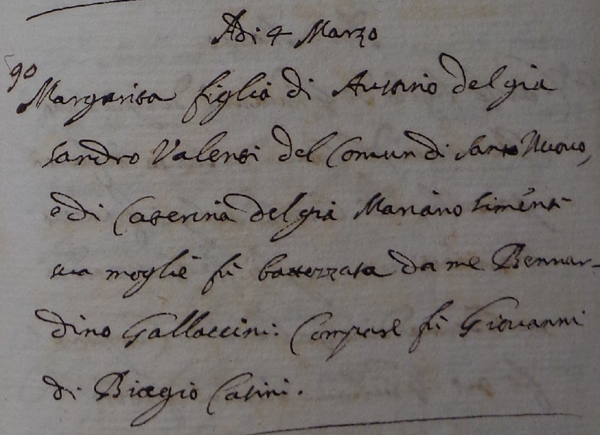 Adi 4 Marzo
90
Margarita figlia di Austino del già
Sandro Valenti del Comun di Santo Nuovo,
e di Caterina del già Mariano
sua moglie fù battezzata da me Bennar-
dino Gallaccini: Compare fù Giovanni
di Biagio Casini.